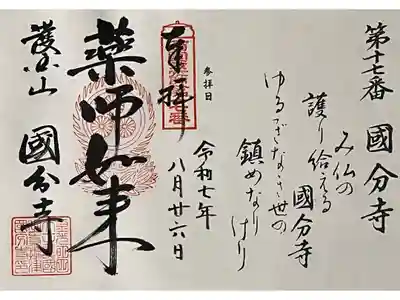 第十七番 國分寺
み仏の
護り給える
國分寺
ゆるぎなき世の
鎮めなりけり
参拝日
令和七年
八月廿六日
奉拝
薬師如来
護国山 國分寺